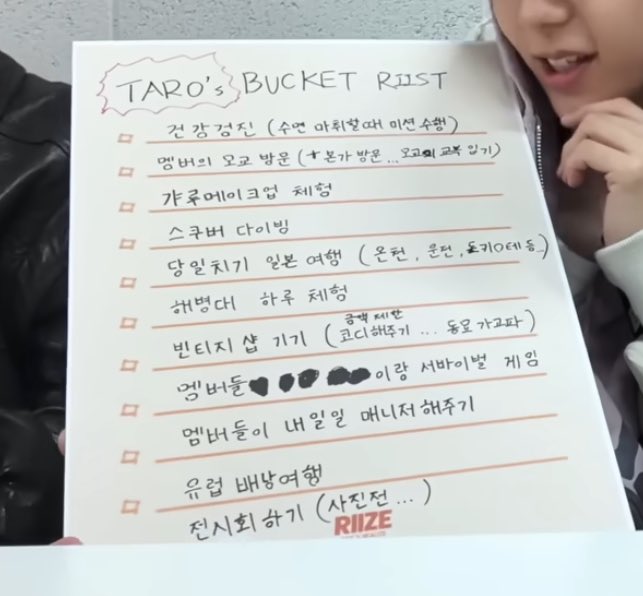 TARO's BUCKET RIIST
건강검진 (수면 마취할때 미션 수행)
멤버의 모교 방문 (+ 본가 방문 ... 모교의 교복 입기)
갸루메이크업 체험
스쿠버 다이빙
당일치기 일본 여행 (온천, 운전, 돈키호테 등)
해병대 하루 체험
금액 제한
빈티지 샵 가기 (코디해주기 ... 동묘 가고파)
멤버들 이랑 서바이벌 게임
멤버들이 내 일일 매니저해주기
유럽 배낭여행
전시회하기 (사진전 ...)
RIIZE